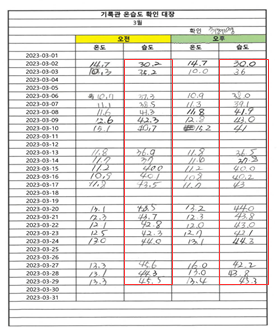 기록관 온습도 확인 대장
3월
확인
오전 오후
온도 습도 온도 습도
2023-03-01
2023-03-02 14.7 30.2 14.7 30.0
2023-03-03 10.3 35.2 10.0 36
2023-03-04
2023-03-05
2023-03-06 10.7 37.3 10.9 38.0
2023-03-07 11.1 38.5 11.3 39.1
2023-03-08 11.6 41.3 11.8 41.9
2023-03-09 12.6 42.3 12.8 43.0
2023-03-10 15.1 40.7 15.2 41
2023-03-11
2023-03-12
2023-03-13 11.8 36.9 11.8
2023-03-14 11.7 37 11.6
2023-03-15 11.2 40.0 11.2 40.0
2023-03-16 10.8 40.1 10.8 40.2
2023-03-17 11.8 43.5 11.7 43
2023-03-18
2023-03-19
2023-03-20 13.1 43.5 13.2 44.0
2023-03-21 12.3 43.7 12.3 43.8
2023-03-22 12.1 42.8 12.0 43.0
2023-03-23 12.5 42.3 12.7 42.1
2023-03-24 13.0 44.0 13.1 44.3
2023-03-25
2023-03-26
2023-03-27 12.3 45.6 42.2
2023-03-28 13.1 44.3 13.0 43.8
2023-03-29 13.3 45.3 13.4 43.3
2023-03-30
2023-03-31